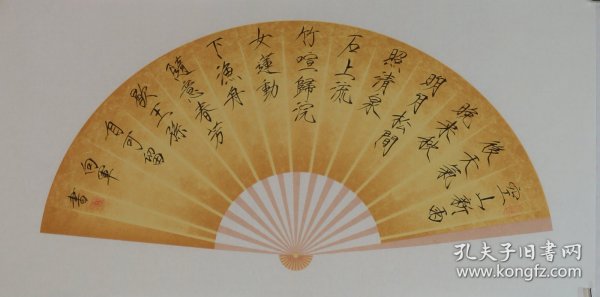 空山新雨
後天氣
晚来秋
明月松間
照清泉
石上流
竹喧歸浣
女蓮動
下漁舟
隨意春芳
歇王孫
自可留
向軍
書
孔夫子旧书网
www.kongfz.com